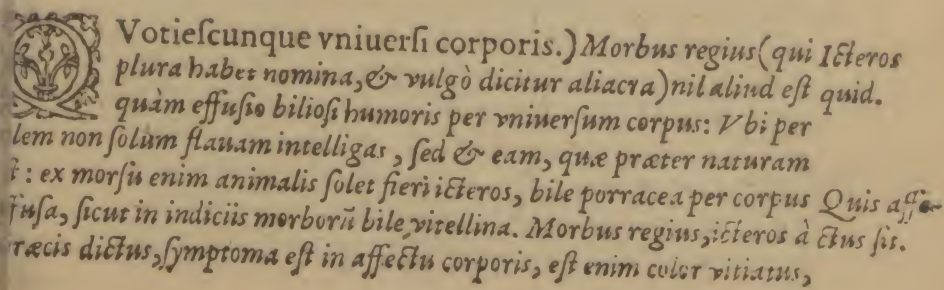 QVotiescunque vniuersi corporis.) Morbus regius (qui Icteros
plura habet nomina, & vulgò dicitur aliacra) nil aliud est quid.
quàm effusio biliosi humoris per vniuersum corpus: Vbi per
lem non solùm flauam intelligas, sed & eam, quæ præter naturam
t: ex morsu enim animalis solet fieri icteros, bile porracea per corpus Quis affe-
fusa, sicut in indiciis morborũ bile vitellina. Morbus regius, icteros à ctus sit.
ræcis dictus, symptoma est in affectu corporis, est enim color vitiatus,